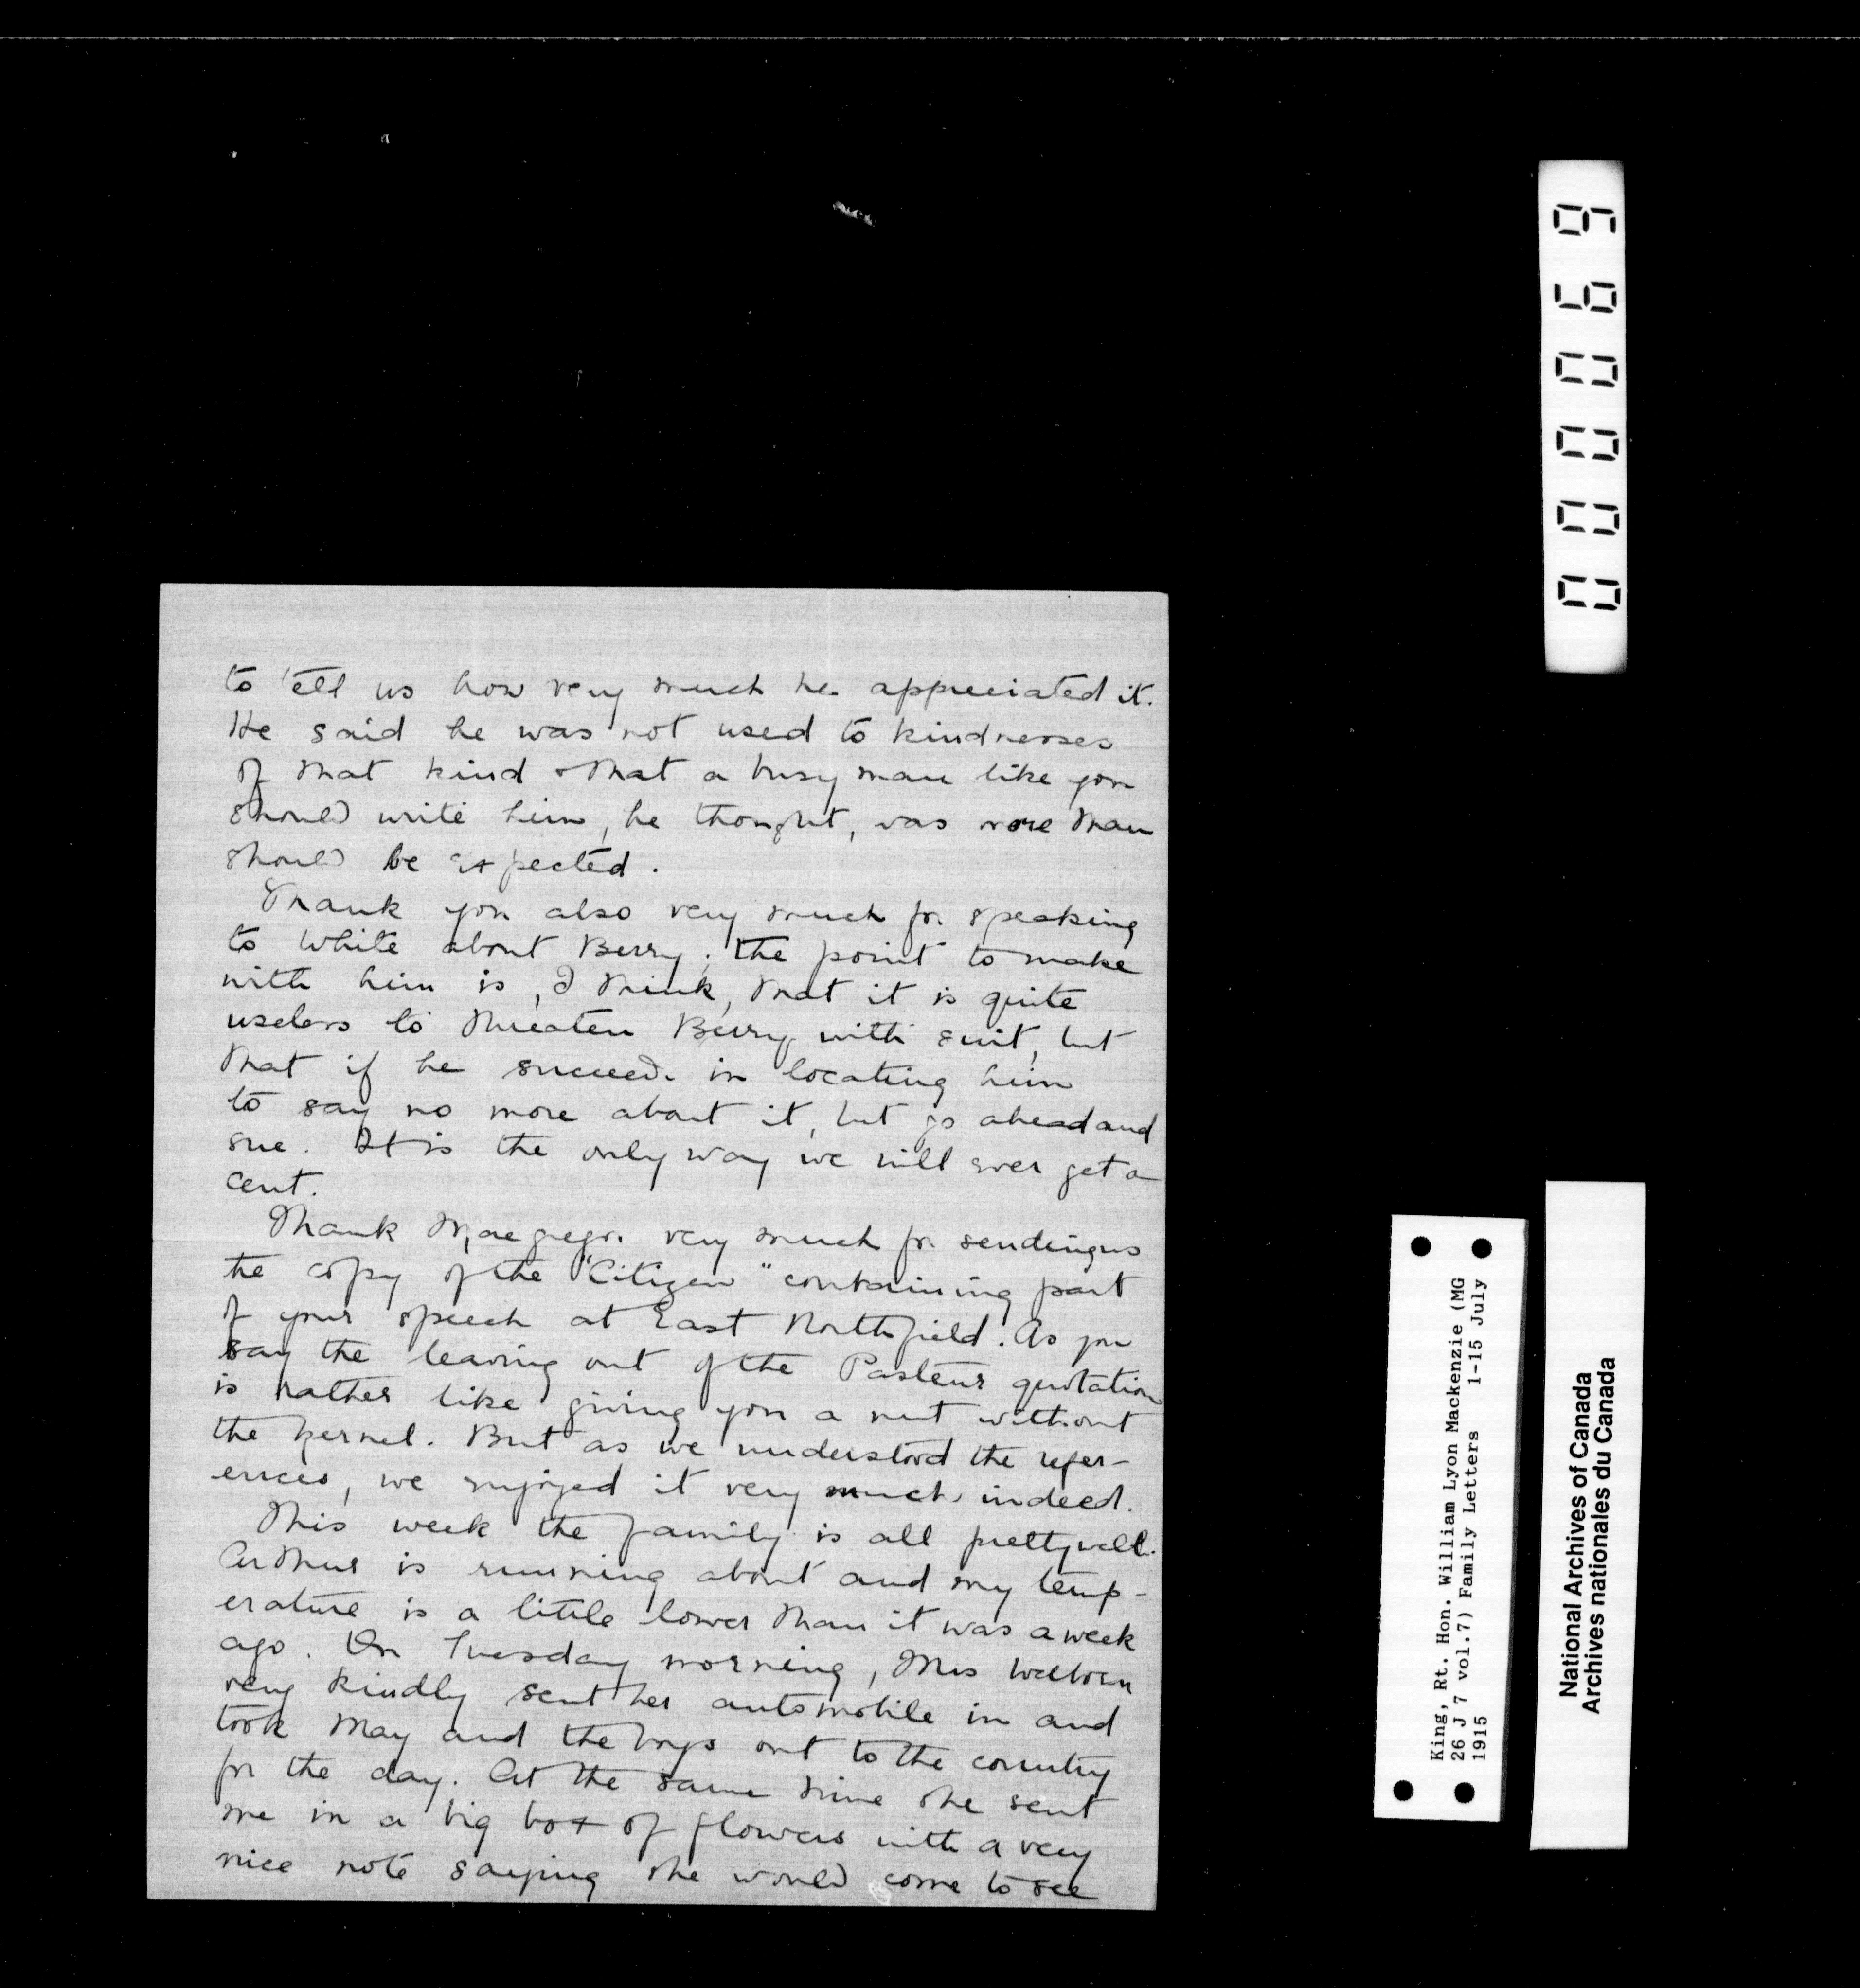 to tell us how very much he appreciated it.
He said he was not used to kindnesses
of that kind & that a busy man like you
should write him, he thought, was more than
should be expected.
Thank you also very much for speaking
to White about Berry; the point to make
with him is, I think, that it is quite
useless to threaten Berry with suit, but
that if he succeeds in locating him
to say no more about it, but go ahead and
sue. It is the only way we will ever get a
cent.
Thank Macgregor very much for sending us
the copy of the "Citizen" containing part
of your speech at East Northfield. As you
say the leaving out of the Pasteur quotation
is rather like giving you a nut without
the kernel. But as we understood the refer-
ences, we enjoyed it very much indeed.
This week the family is all pretty well.
Arthur is running about and my temp-
erature is a little lower than it was a week
ago. On Tuesday morning, Mrs Welborn
very kindly sent her automobile in and
took May and the boys out to the country
for the day. At the same time she sent
me in a big box of flowers with a very
nice note saying she would come to see
000069
King, Rt. Hon. William Lyon Mackenzie (MG
26 J 7 vol.7) Family Letters 1-15 July
1915
National Archives of Canada
Archives nationales du Canada